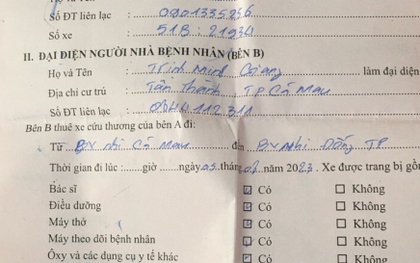 Số ĐT liên lạc : 0901335256
Số xe : 51B : 21934
II. ĐẠI DIỆN NGƯỜI NHÀ BỆNH NHÂN (BÊN B)
Họ và Tên : Trịnh Minh Giang làm đại diện
Địa chỉ cư trú : Tân Thành TP Cà Mau
Số ĐT liên lạc : 0944112311
Bên B thuê xe cứu thương của bên A đi:
Từ BV nhi Cà Mau đến BV Nhi Đồng TP
Thời gian đi lúc :......giờ ......ngày 03 tháng 07 năm 2023. Xe được trang bị gồm
Bác sĩ ☑ Có ☐ Không
Điều dưỡng ☑ Có ☐ Không
Máy thở ☑ Có ☐ Không
Máy theo dõi bệnh nhân ☑ Có ☐ Không
Ôxy và các dụng cụ y tế khác ☑ Có ☐ Không